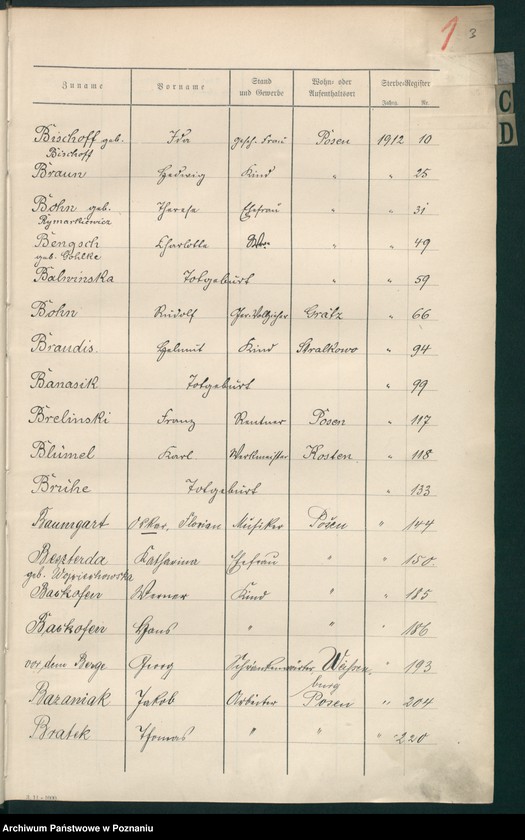 1 3
C
D
Zuname Vorname Stand und Gewerbe Wohn- oder Aufenthaltsort Sterbe-Register
Jahrg. Nr.
Bischoff geb. Ida gesch. Frau Posen 1912 10
Bischoff
Braun Hedwig Kind " " 25
Bohn geb. Therese Ehefrau " " 31
Rymarkiewicz
Bengsch Charlotte " " 49
geb. Gohlke
Balwinska Totgeburt " " 59
Bohn Rudolf Ger. Vollzieher Grätz " 66
Braudis Helmut Kind Stralkowo " 94
Banasik Totgeburt " 99
Brelinski Franz Rentner Posen " 117
Blümel Karl Werkmeister Kosten " 118
Brühe Totgeburt " 133
Baumgart Oskar, Florian Musiker Posen " 144
Katharina Ehefrau " " 150
geb. Wojciechowska
Backofen Werner Kind " " 185
Backofen Hans " " " 186
vor dem Berge Georg Schrankenwärter " 193
burg
Bazaniak Jakob Arbeiter Posen " 204
Bratek Thomas " " " 220
Archiwum Państwowe w Poznaniu